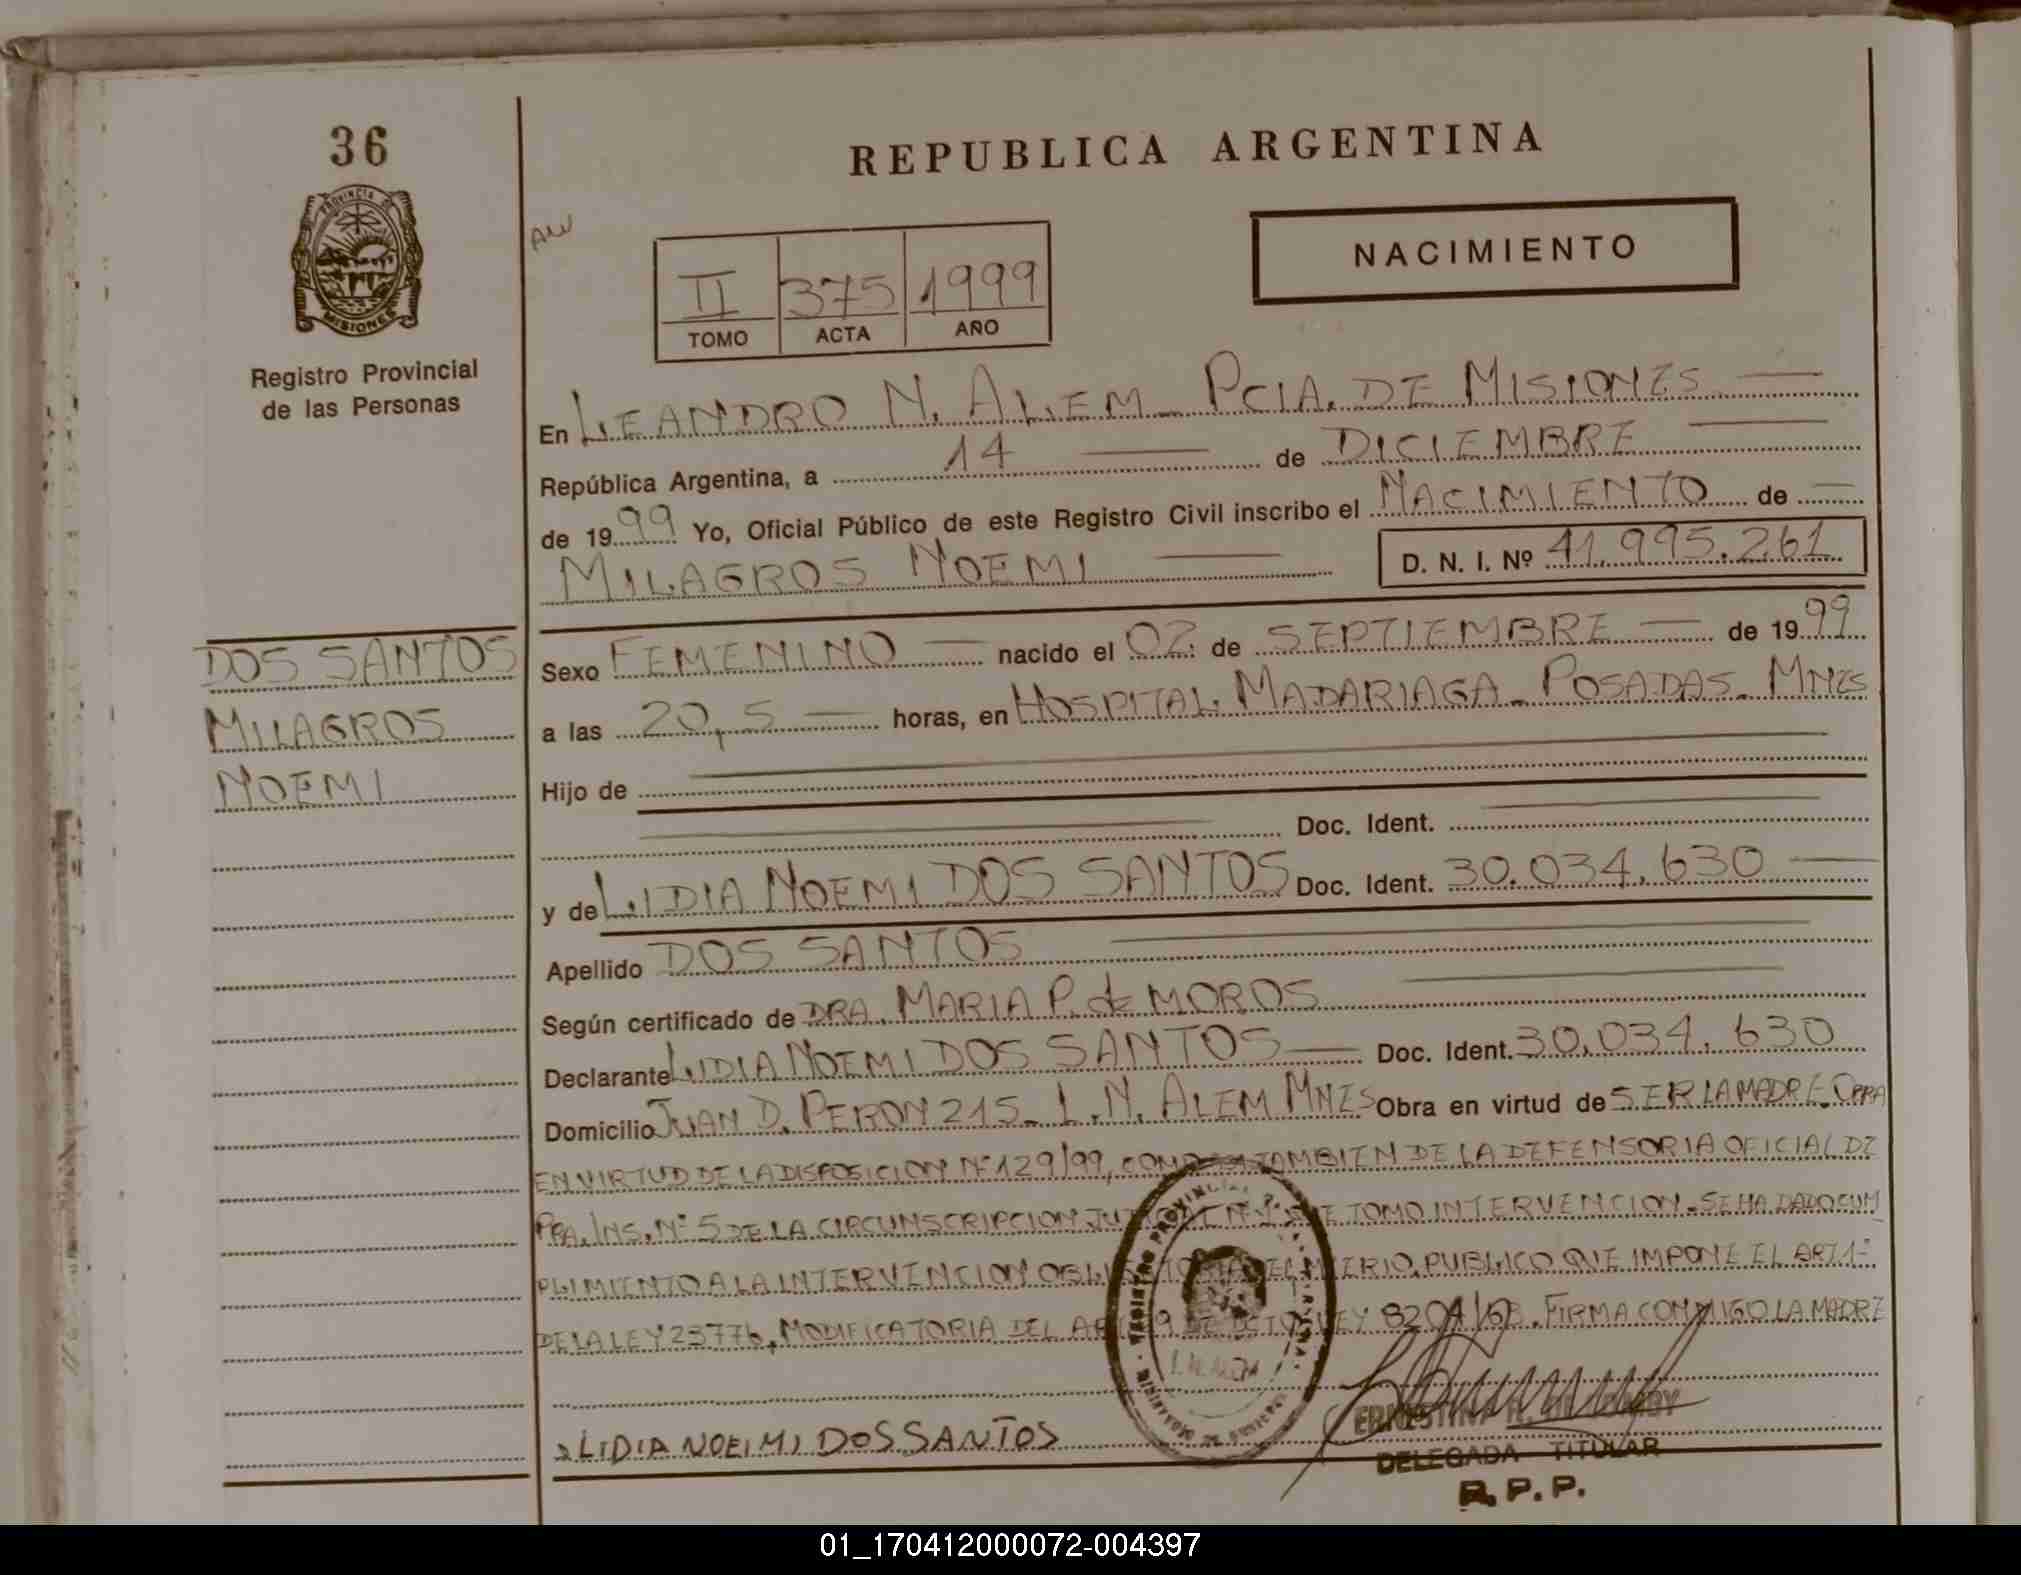 36
REPUBLICA ARGENTINA
PROVINCIA DE
MISIONES
Registro Provincial
de las Personas
NACIMIENTO
II 375 1999
TOMO ACTA AÑO
En LEANDRO N. ALEM - PCIA. DE MISIONES
República Argentina, a 14 de DICIEMBRE
de 1999 Yo, Oficial Público de este Registro Civil inscribo el NACIMIENTO de
MILAGROS NOEMI D. N. I. Nº 41.995.261
DOS SANTOS
MILAGROS
NOEMI
Sexo FEMENINO nacido el 02 de SEPTIEMBRE de 1999
a las 20,5 horas, en HOSPITAL MADARIAGA - POSADAS - MNES
Hijo de
Doc. Ident.
y de LIDIA NOEMI DOS SANTOS Doc. Ident. 30.034.630
Apellido DOS SANTOS
Según certificado de DRA. MARIA P. de MOROS
Declarante LIDIA NOEMI DOS SANTOS Doc. Ident. 30.034.630
Domicilio JUAN D. PERON 215 - L.N. ALEM MNES Obra en virtud de SER LA MADRE. OBRA
EN VIRTUD DE LA DISPOSICION Nº 129/99, COMO TAMBIEN DE LA DEFENSORIA OFICIAL DE
PRA. INS. Nº 5 DE LA CIRCUNSCRIPCION TOMO INTERVENCION. SE HA DADO CUM
PLIMIENTO A LA INTERVENCION PUBLICO QUE IMPONE EL ART 1º
DE LA LEY 23776, MODIFICATORIA DEL LEY 8204/63. FIRMA CONMIGO LA MADRE
LIDIA NOEMI DOS SANTOS
DELEGADA TITULAR
R.P.P.
01_170412000072-004397